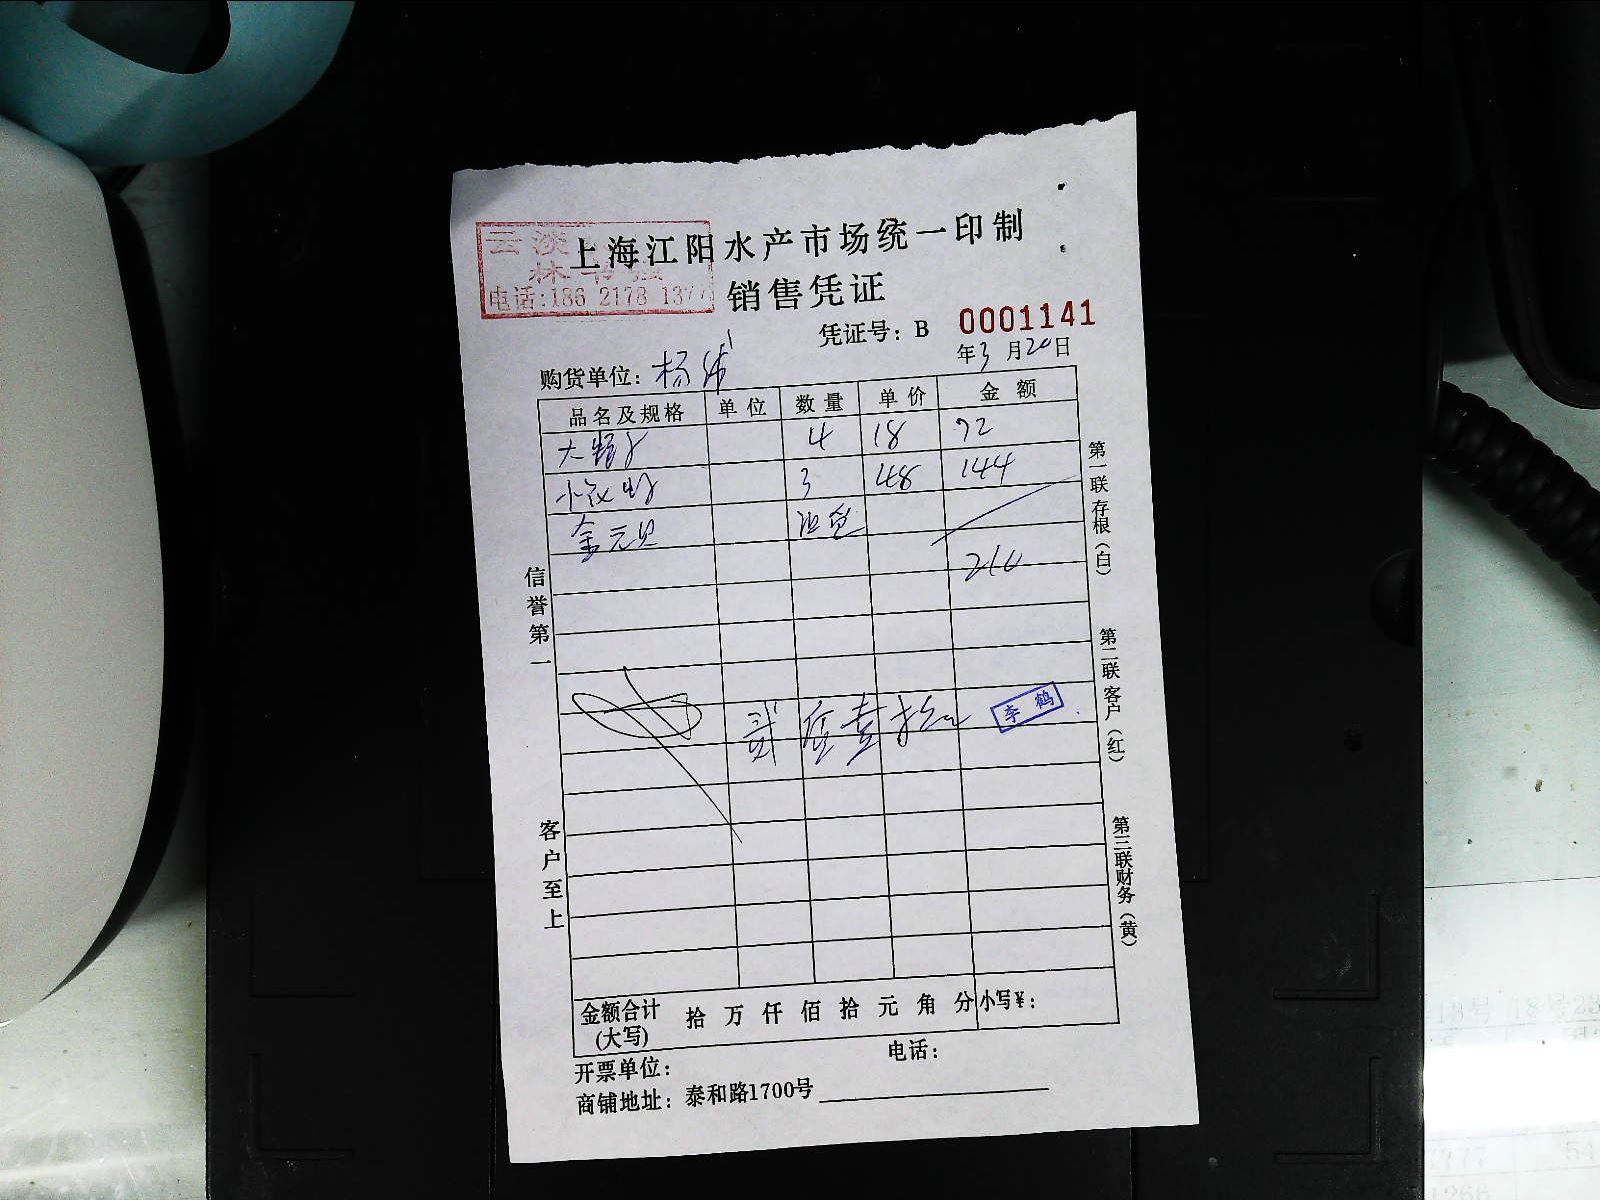 上海江阳水产市场统一印制
云淡
林书
电话:186 2178 1377
销售凭证
凭证号: B 0001141
年3月20日
购货单位: 杨伟
品名及规格 单位 数量 单价 金额
大蛏子 4 18 72
小 3 48 144
金元贝 3包
210
贰佰壹拾元
李鹤
金额合计(大写) 拾 万 仟 佰 拾 元 角 分 小写¥:
开票单位: 电话:
商铺地址: 泰和路1700号
信誉第一
客户至上
第一联存根(白)
第二联客户(红)
第三联财务(黄)
18号 18号